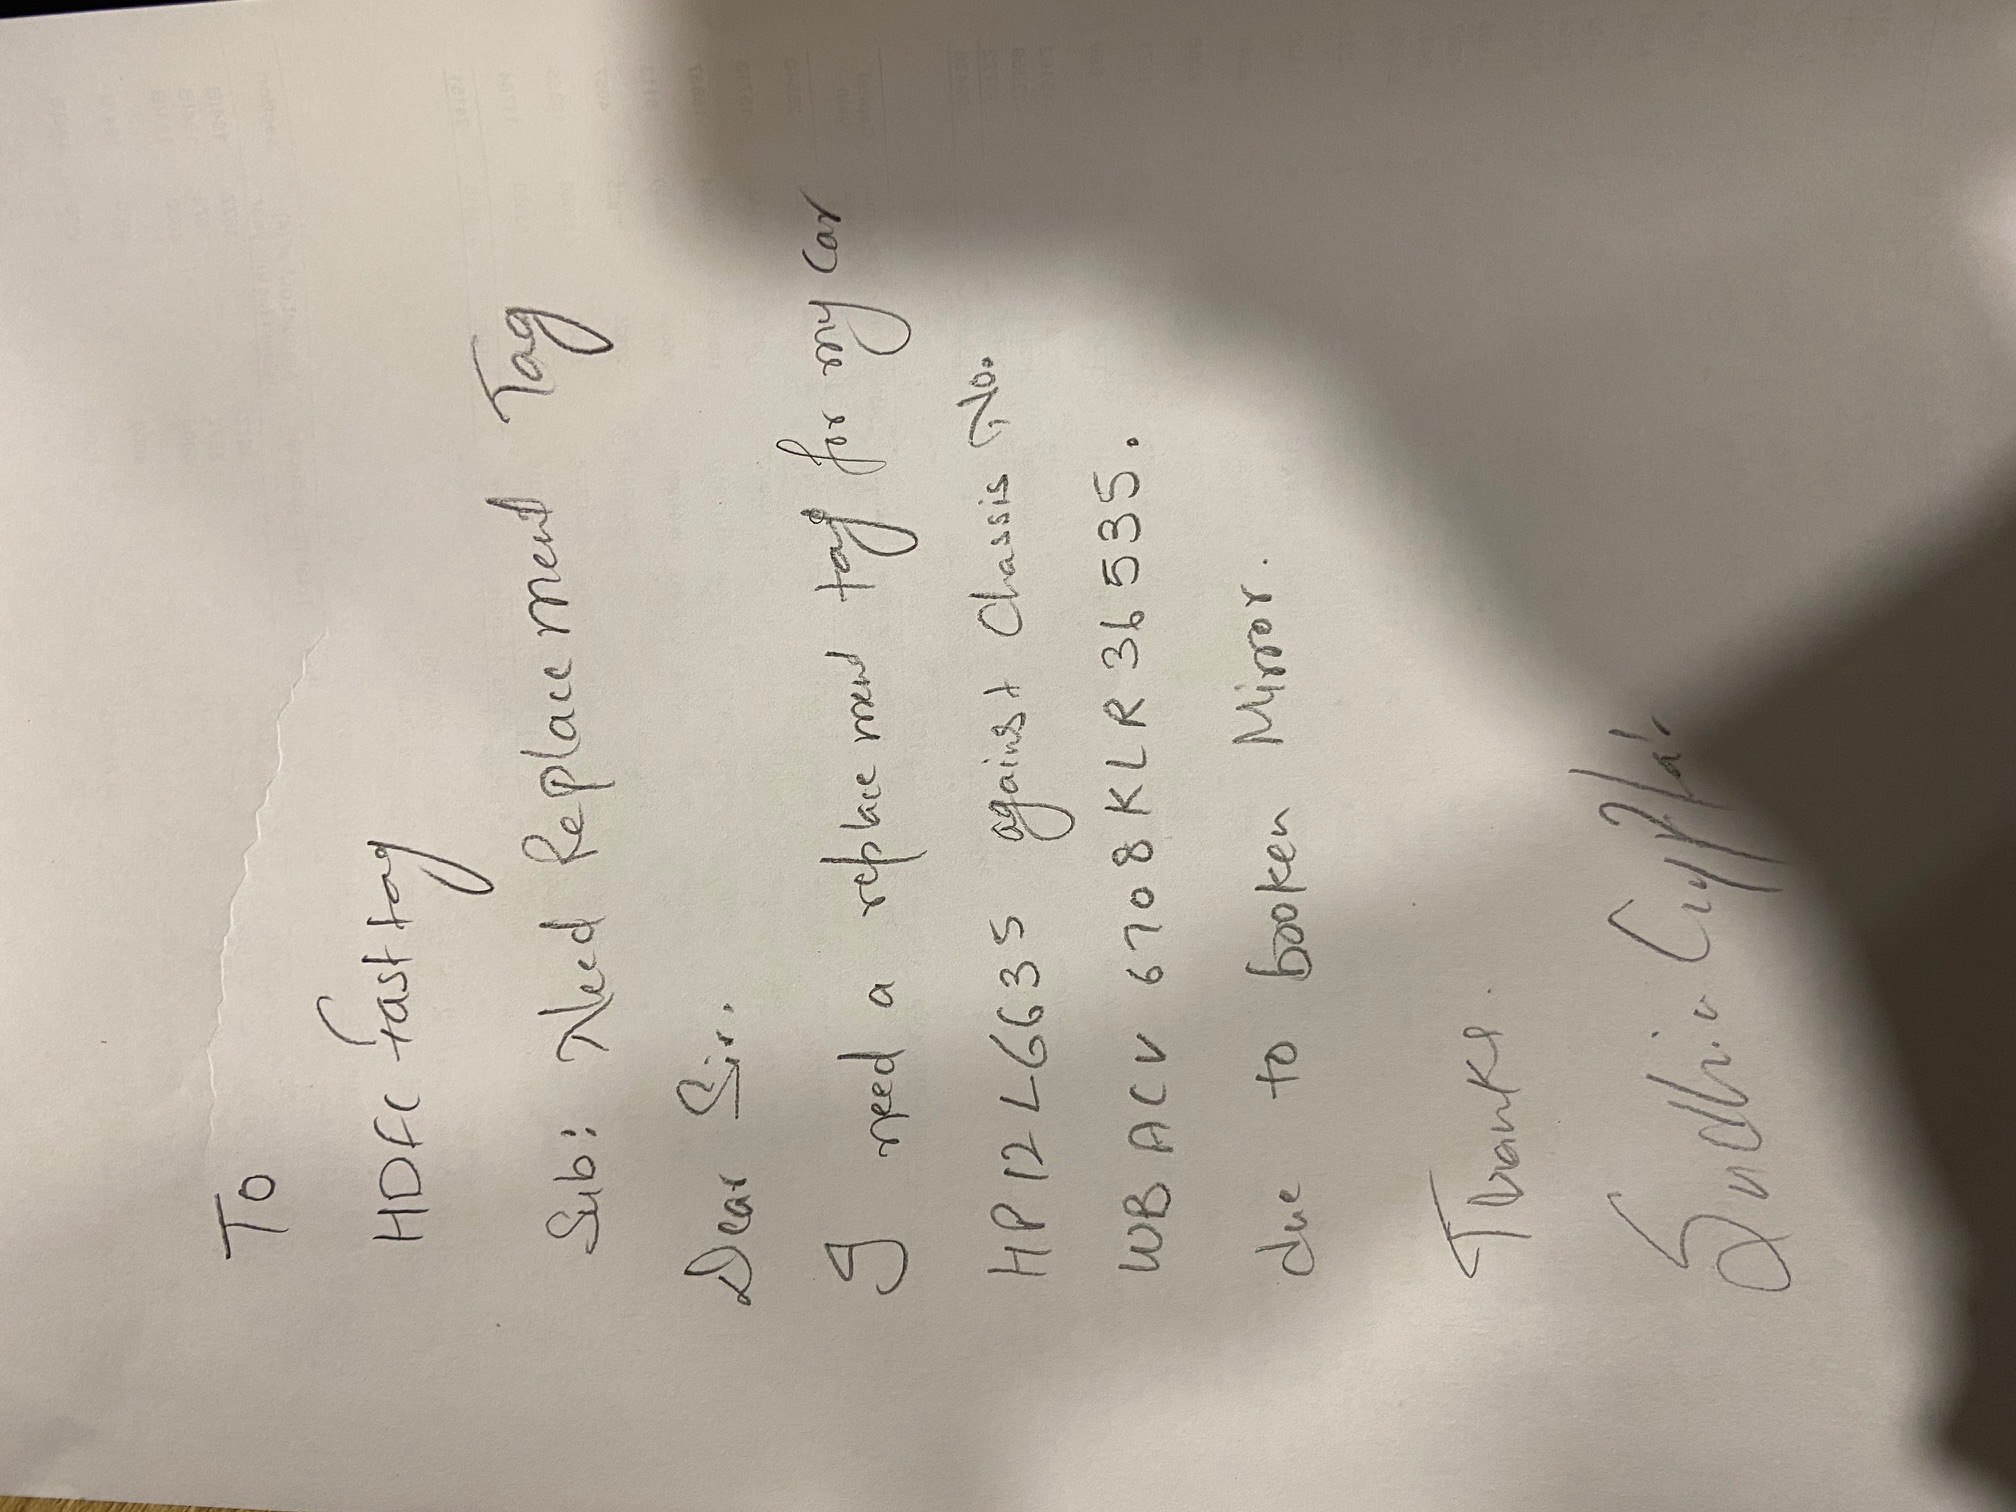 To
HDFC Fasttag
Sub: Need Replacement Tag
Dear Sir.
I need a replacement tag for my car
HP12L6635 against Chassis No.
WBACV6708KLR36535.
due to booken Mirror.
Thanks.
Sudhir Gupta